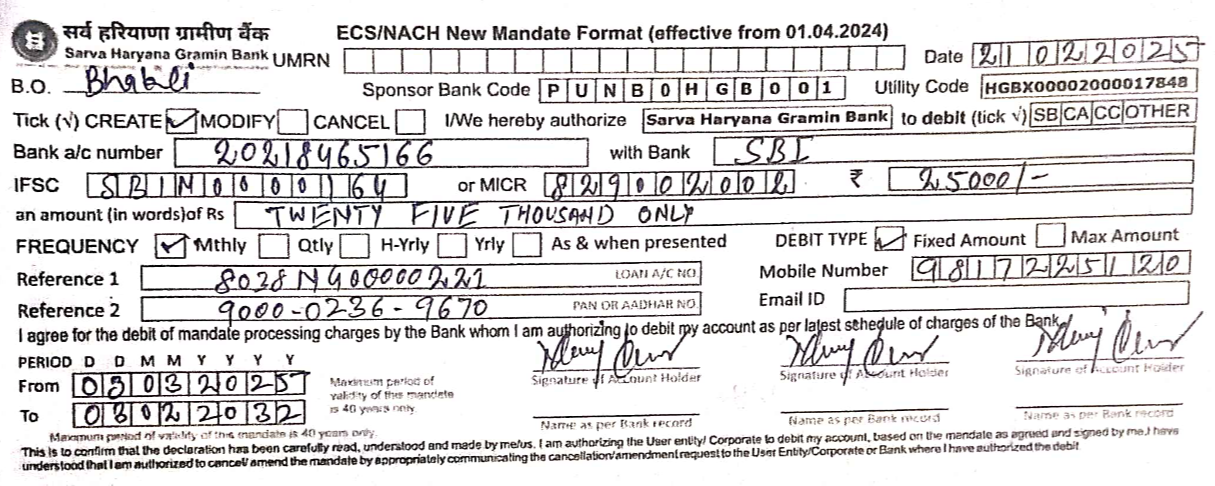 सर्व हरियाणा ग्रामीण बैंक ECS/NACH New Mandate Format (effective from 01.04.2024)
Sarva Haryana Gramin Bank UMRN Date 21022025
B.O. Bhabli Sponsor Bank Code PUNB0HGB001 Utility Code HGBX00002000017848
Tick (√) CREATE ✓ MODIFY CANCEL I/We hereby authorize Sarva Haryana Gramin Bank to debit (tick √) SB CA CC OTHER
Bank a/c number 20218465166 with Bank SBI
IFSC SBIN0000164 or MICR 829002002 ₹ 25000/-
an amount (in words)of Rs TWENTY FIVE THOUSAND ONLY
FREQUENCY ✓ Mthly Qtly H-Yrly Yrly As & when presented DEBIT TYPE ✓ Fixed Amount Max Amount
Reference 1 8038NG00000221 LOAN A/C NO. Mobile Number 9817225120
Reference 2 9000-0236-9670 PAN OR AADHAR NO. Email ID
I agree for the debit of mandate processing charges by the Bank whom I am authorizing to debit my account as per latest schedule of charges of the Bank
PERIOD D D M M Y Y Y Y
From 05032025 Maximum period of validity of this mandate is 40 years only. Signature of Account Holder Signature of Account Holder Signature of Account Holder
To 08022032 Name as per Bank record Name as per Bank record Name as per Bank record
Maximum period of validity of this mandate is 40 years only.
This is to confirm that the declaration has been carefully read, understood and made by me/us. I am authorizing the User entity/ Corporate to debit my account, based on the mandate as agreed and signed by me.I have
understood that I am authorized to cancel/ amend the mandate by appropriately communicating the cancellation/amendment request to the User Entity/Corporate or Bank where I have authorized the debit